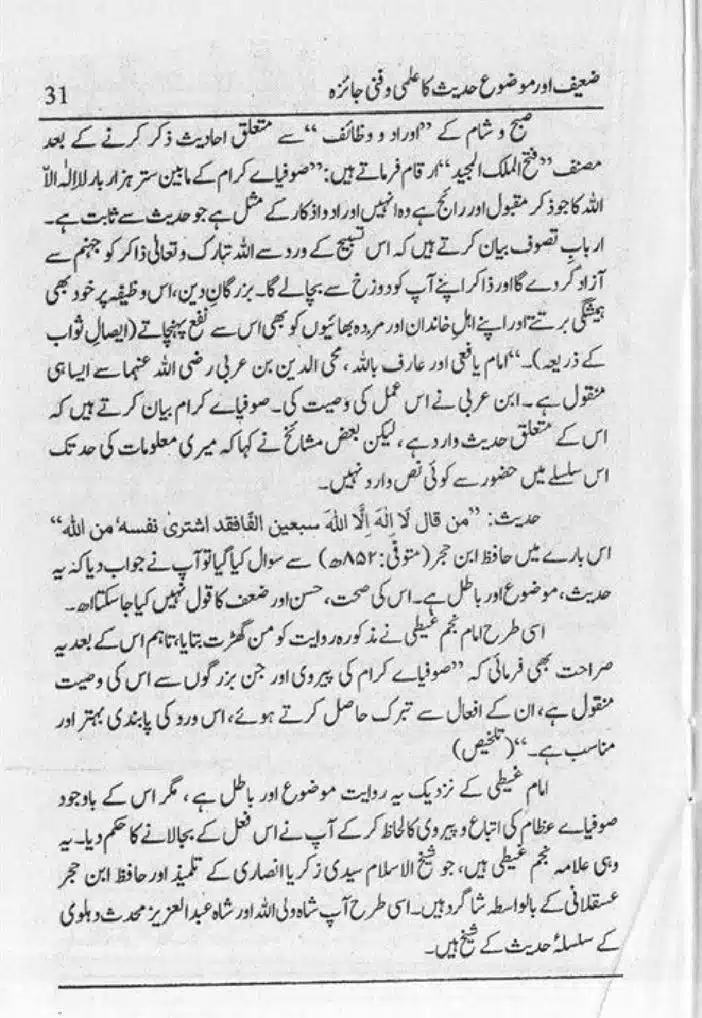 ضعیف اور موضوع حدیث کا علمی و فنی جائزہ 31
صبح و شام کے ”اوراد و وظائف“ سے متعلق احادیث ذکر کرنے کے بعد
مصنف ”فتح الملک المجید“ ارقام فرماتے ہیں: ”صوفیاے کرام کے مابین ستر ہزار بار لا الٰہ الاّ
اللہ کا جو ذکر مقبول اور رائج ہے وہ انہیں اوراد و اذکار کے مثل ہے جو حدیث سے ثابت ہے۔
اربابِ تصوف بیان کرتے ہیں کہ اس تسبیح کے ورد سے اللہ تبارک و تعالیٰ ذاکر کو جہنم سے
آزاد کر دے گا اور ذاکر اپنے آپ کو دوزخ سے بچا لے گا۔ بزرگانِ دین، اس وظیفہ پر خود بھی
ہمیشگی برتتے اور اپنے اہلِ خاندان اور مردہ بھائیوں کو بھی اس سے نفع پہنچاتے (ایصالِ ثواب
کے ذریعہ)۔“ امام یافعی اور عارف باللہ، محی الدین بن عربی رضی اللہ عنہما سے ایسا ہی
منقول ہے۔ ابن عربی نے اس عمل کی وصیت کی۔ صوفیاے کرام بیان کرتے ہیں کہ
اس کے متعلق حدیث وارد ہے، لیکن بعض مشائخ نے کہا کہ میری معلومات کی حد تک
اس سلسلے میں حضور سے کوئی نص وارد نہیں۔
حدیث: ”من قال لَا اِلٰهَ اِلَّا اللهُ سبعین الفًا فقد اشتریٰ نفسهٗ من الله“
اس بارے میں حافظ ابن حجر (متوفّٰی: ۸۵۲ھ) سے سوال کیا گیا تو آپ نے جواب دیا کہ یہ
حدیث، موضوع اور باطل ہے۔ اس کی صحت، حسن اور ضعف کا قول نہیں کیا جا سکتا اھ۔
اسی طرح امام نجم غیطی نے مذکورہ روایت کو من گھڑت بتایا، تاہم اس کے بعد یہ
صراحت بھی فرمائی کہ ”صوفیاے کرام کی پیروی اور جن بزرگوں سے اس کی وصیت
منقول ہے، ان کے افعال سے تبرک حاصل کرتے ہوئے، اس ورد کی پابندی بہتر اور
مناسب ہے۔“ (تلخیص)
امام غیطی کے نزدیک یہ روایت موضوع اور باطل ہے، مگر اس کے باوجود
صوفیاے عظام کی اتباع و پیروی کا لحاظ کر کے آپ نے اس فعل کے بجا لانے کا حکم دیا۔ یہ
وہی علامہ نجم غیطی ہیں، جو شیخ الاسلام سیدی زکریا انصاری کے تلمیذ اور حافظ ابن حجر
عسقلانی کے بالواسطہ شاگرد ہیں۔ اسی طرح آپ شاہ ولی اللہ اور شاہ عبد العزیز محدث دہلوی
کے سلسلۂ حدیث کے شیخ ہیں۔